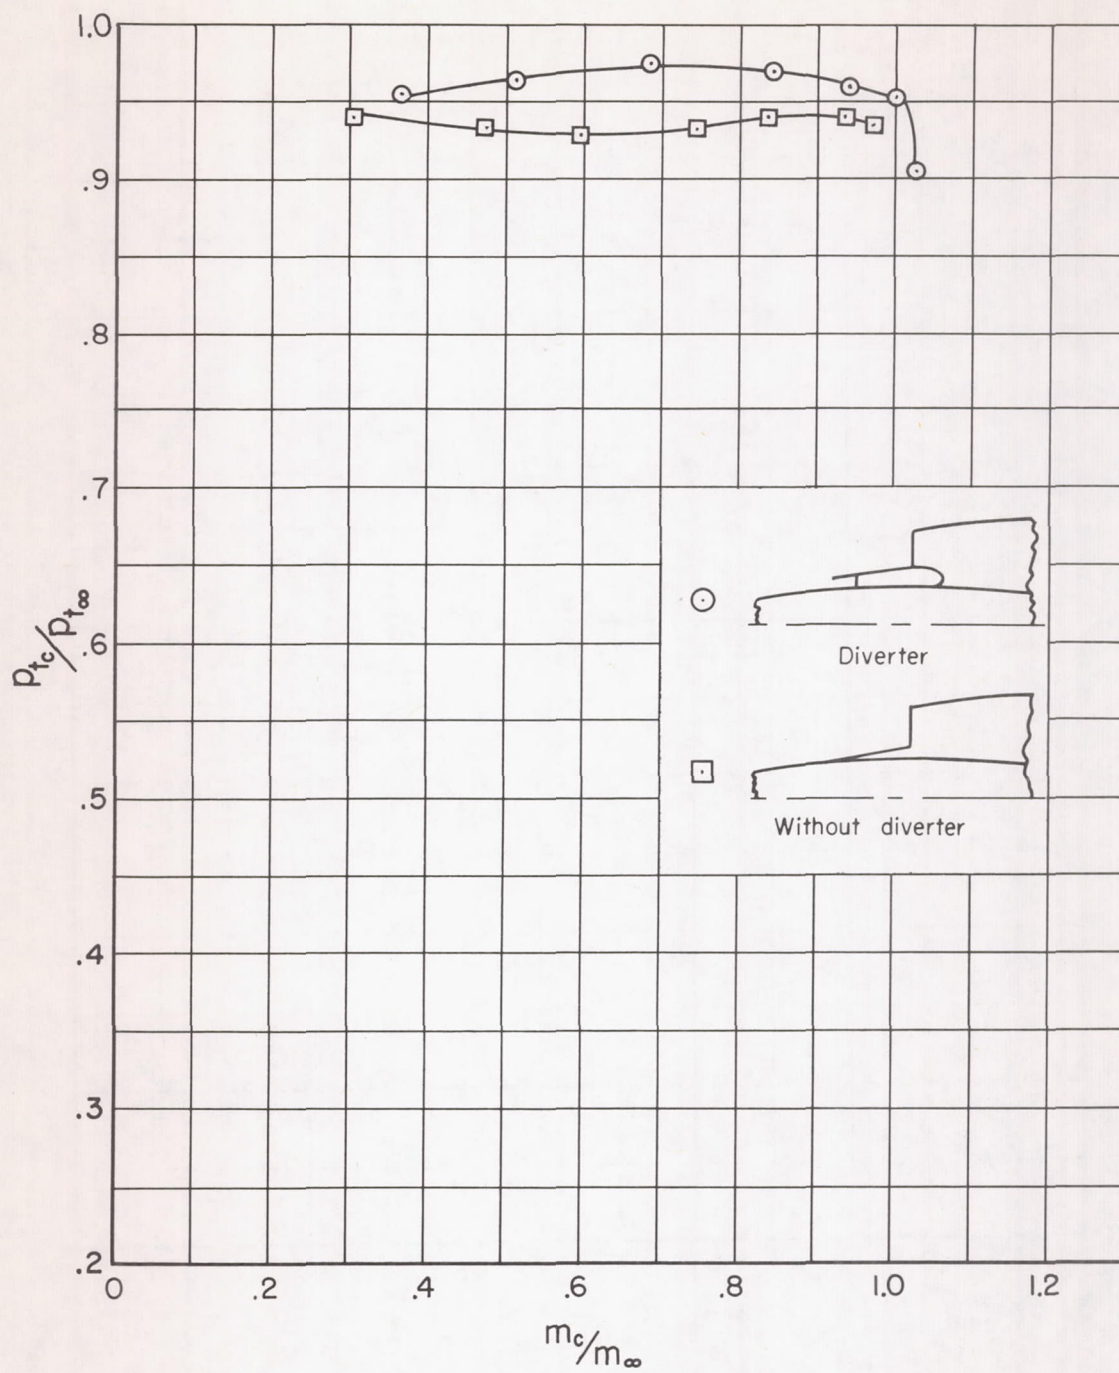 1.0
.9
.8
.7
.6
.5
.4
.3
.2
p_tc/p_t∞
Diverter
Without diverter
0 .2 .4 .6 .8 1.0 1.2
m_c/m_∞